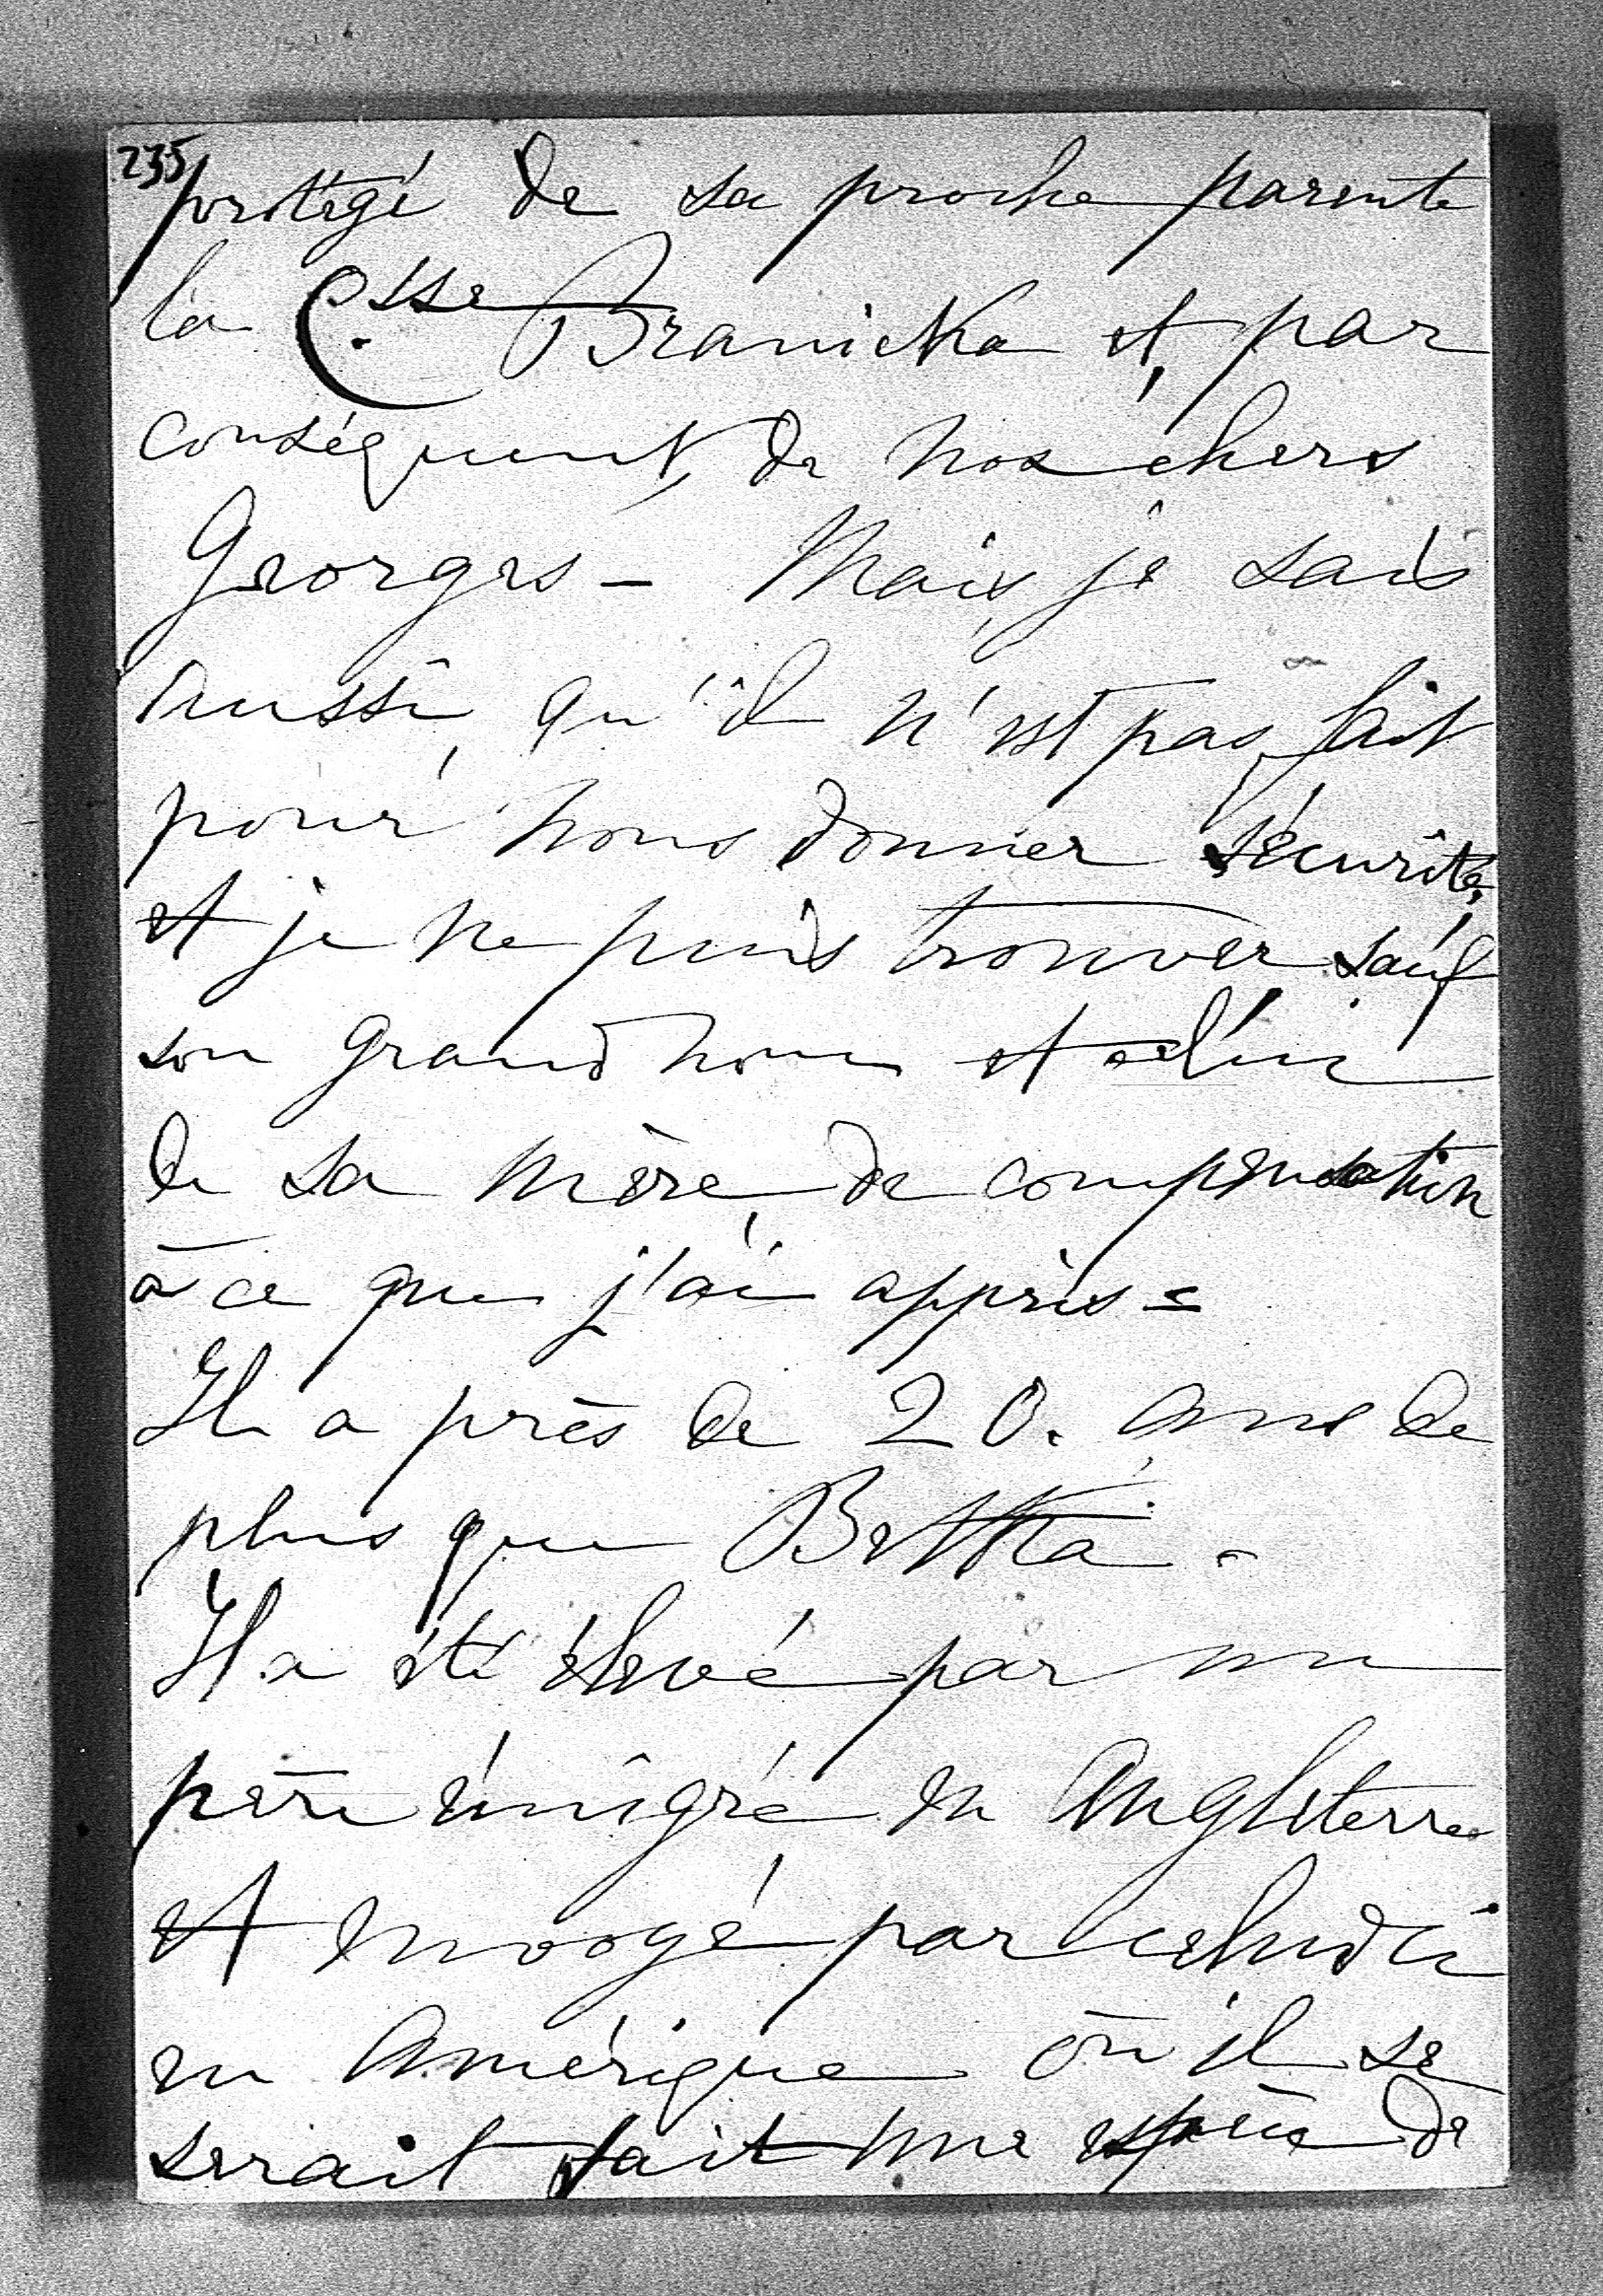 235
protégé de sa proche parente
la Csse Branicka et, par
conséquent, de nos chers
Georges - Mais je sais
aussi, qu'il n'est pas fait
pour nous donner sécurité,
et je ne puis trouver sauf
son grand nom et celui
de sa mère, de compensation
à ce que j'ai appris =
Il a près de 20. ans de
plus que Bettka -
Il a été élevé par un
père émigré en Angleterre
et envoyé par celui ci
en Amérique où il se
serait fait une espèce de